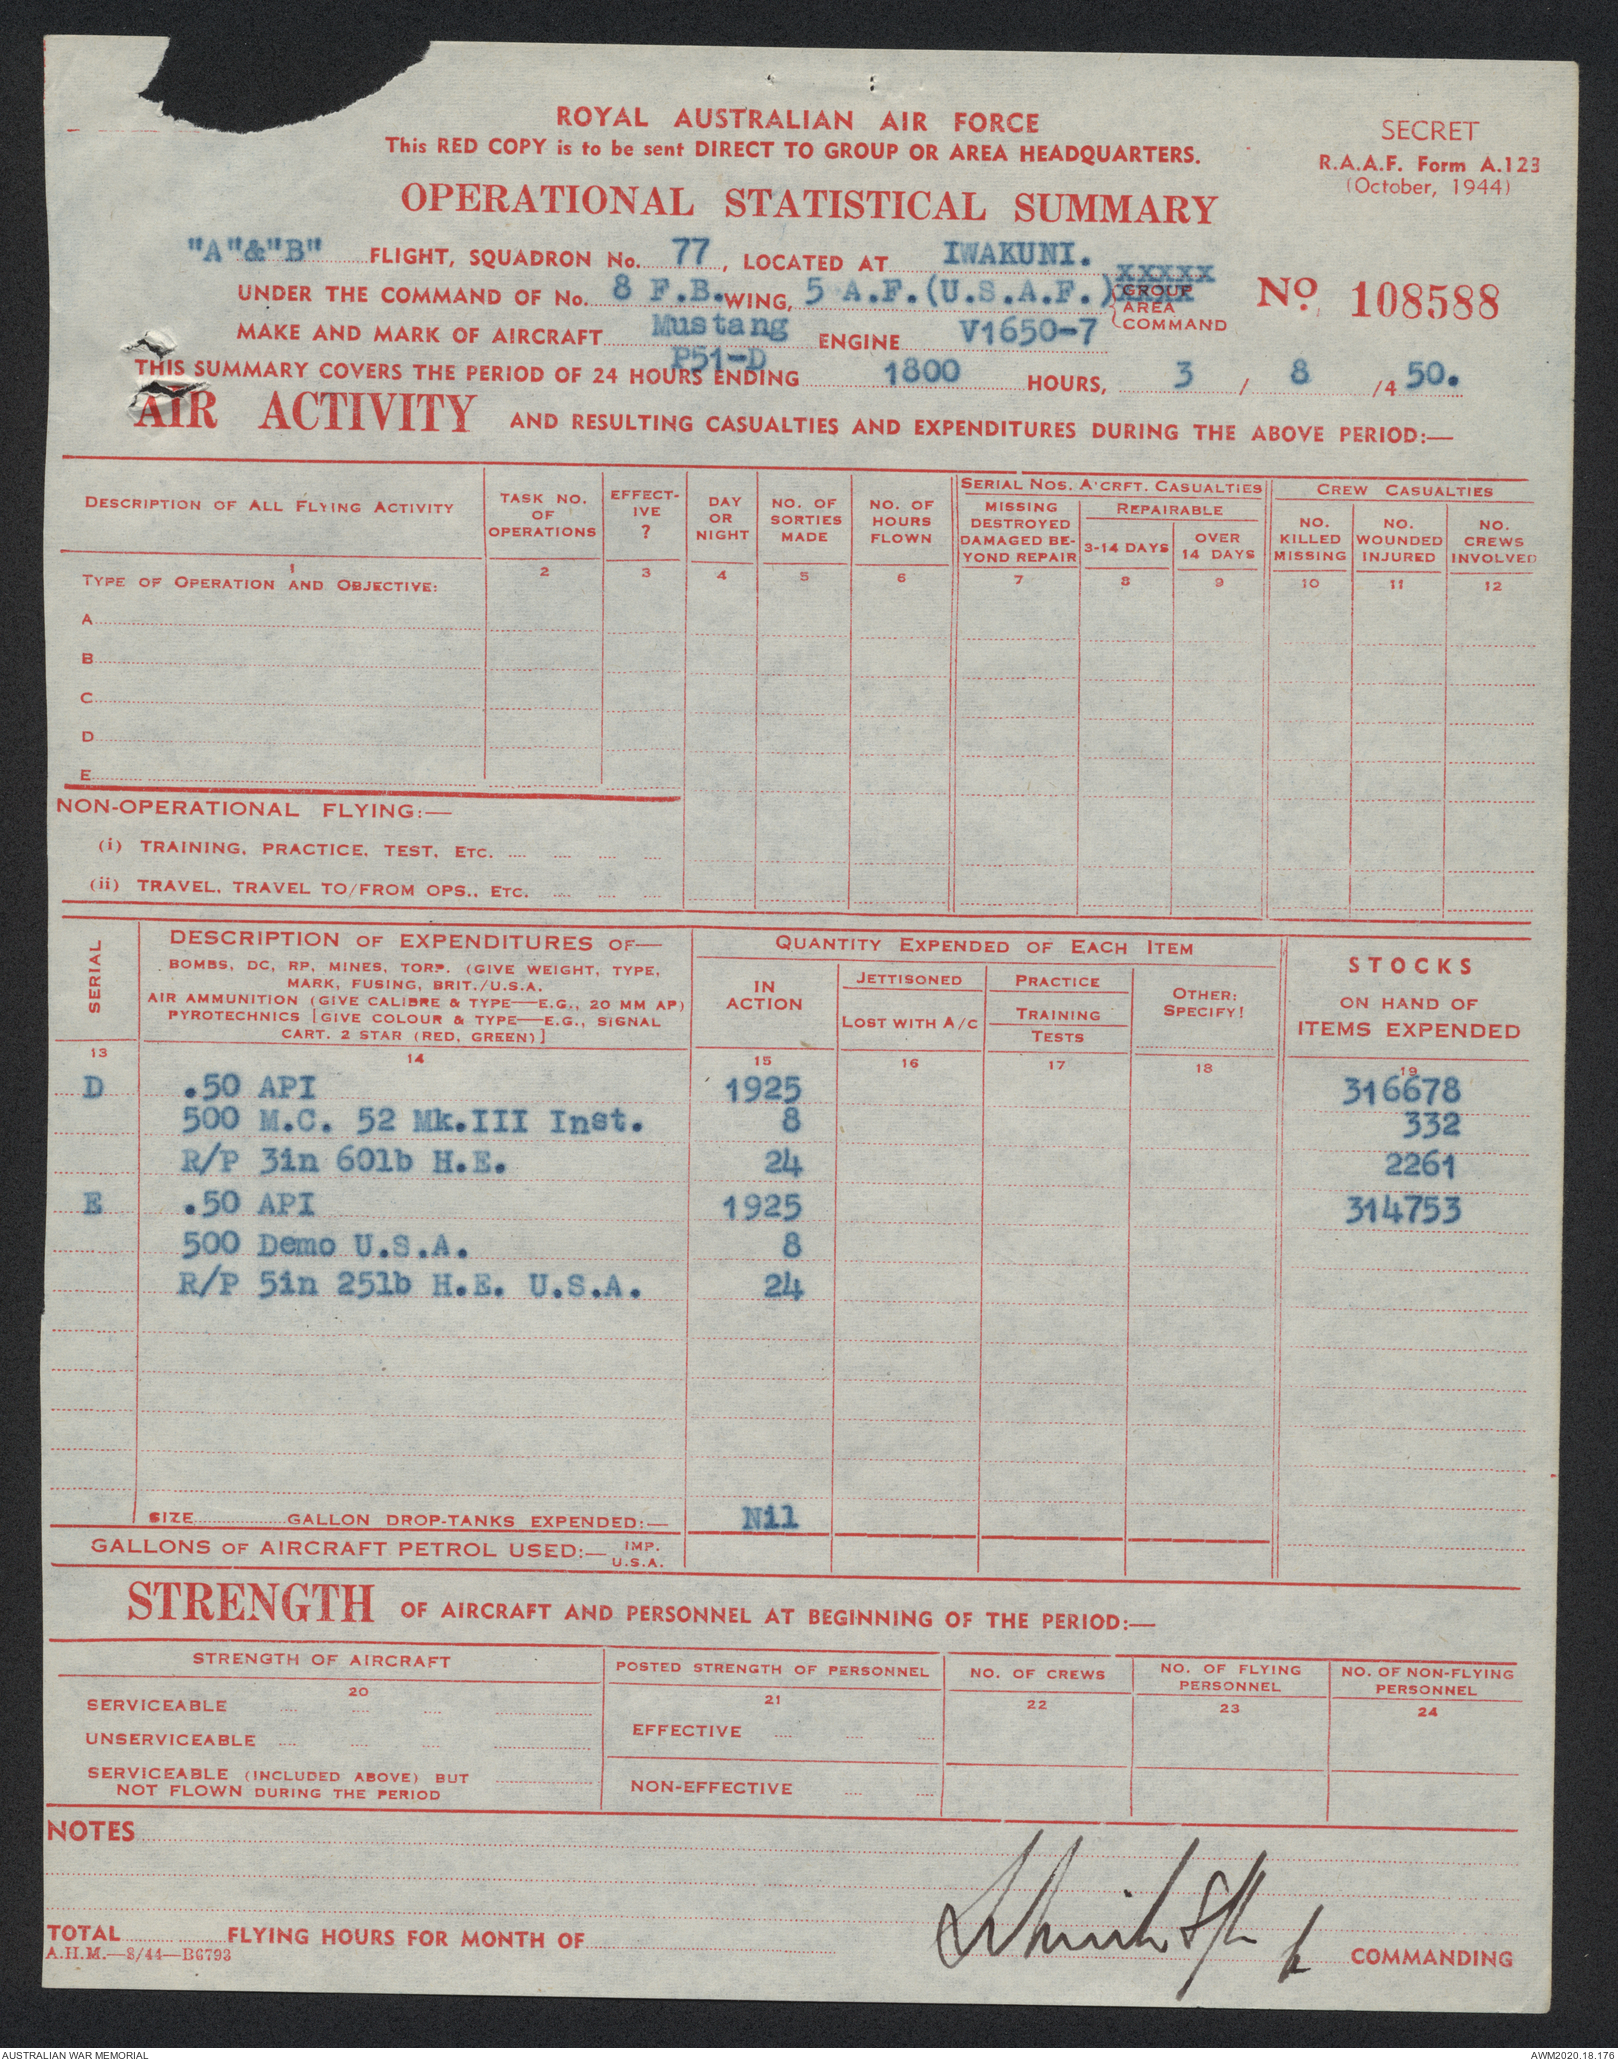 ROYAL AUSTRALIAN AIR FORCE
This RED COPY is to be sent DIRECT TO GROUP OR AREA HEADQUARTERS.
SECRET
R.A.A.F. Form A.123
(October, 1944)
OPERATIONAL STATISTICAL SUMMARY
"A"&"B" FLIGHT, SQUADRON No. 77, LOCATED AT IWAKUNI.
UNDER THE COMMAND OF No. 8 F.B. WING, 5 A.F.(U.S.A.F.) XXXXX
GROUP
AREA
COMMAND
No. 108588
MAKE AND MARK OF AIRCRAFT Mustang P51-D ENGINE V1650-7
THIS SUMMARY COVERS THE PERIOD OF 24 HOURS ENDING 1800 HOURS, 3 / 8 /4 50.
AIR ACTIVITY AND RESULTING CASUALTIES AND EXPENDITURES DURING THE ABOVE PERIOD:—
DESCRIPTION OF ALL FLYING ACTIVITY
TASK NO. OF OPERATIONS
EFFECT-IVE ?
DAY OR NIGHT
NO. OF SORTIES MADE
NO. OF HOURS FLOWN
SERIAL NOS. A'CRFT. CASUALTIES
MISSING DESTROYED DAMAGED BE-YOND REPAIR
REPAIRABLE
3-14 DAYS
OVER 14 DAYS
CREW CASUALTIES
NO. KILLED MISSING
NO. WOUNDED INJURED
NO. CREWS INVOLVED
1 2 3 4 5 6 7 8 9 10 11 12
TYPE OF OPERATION AND OBJECTIVE:
A
B
C
D
E
NON-OPERATIONAL FLYING:—
(i) TRAINING, PRACTICE, TEST, ETC.
(ii) TRAVEL, TRAVEL TO/FROM OPS., ETC.
SERIAL
DESCRIPTION OF EXPENDITURES OF—
BOMBS, DC, RP, MINES, TORP. (GIVE WEIGHT, TYPE,
MARK, FUSING, BRIT./U.S.A.
AIR AMMUNITION (GIVE CALIBRE & TYPE—E.G., 20 MM AP)
PYROTECHNICS [GIVE COLOUR & TYPE—E.G., SIGNAL
CART. 2 STAR (RED, GREEN)]
QUANTITY EXPENDED OF EACH ITEM
IN ACTION
JETTISONED
LOST WITH A/C
PRACTICE
TRAINING
TESTS
OTHER: SPECIFY!
STOCKS
ON HAND OF
ITEMS EXPENDED
13 14 15 16 17 18 19
D .50 API 1925 316678
500 M.C. 52 Mk.III Inst. 8 332
R/P 3in 60lb H.E. 24 2261
E .50 API 1925 314753
500 Demo U.S.A. 8
R/P 5in 25lb H.E. U.S.A. 24
SIZE GALLON DROP-TANKS EXPENDED:— Nil
GALLONS OF AIRCRAFT PETROL USED:— IMP.
U.S.A.
STRENGTH OF AIRCRAFT AND PERSONNEL AT BEGINNING OF THE PERIOD:—
STRENGTH OF AIRCRAFT
POSTED STRENGTH OF PERSONNEL
NO. OF CREWS
NO. OF FLYING PERSONNEL
NO. OF NON-FLYING PERSONNEL
20 21 22 23 24
SERVICEABLE
EFFECTIVE
UNSERVICEABLE
SERVICEABLE (INCLUDED ABOVE) BUT
NOT FLOWN DURING THE PERIOD
NON-EFFECTIVE
NOTES
TOTAL FLYING HOURS FOR MONTH OF
COMMANDING
A.H.M.—8/44—B6793
AUSTRALIAN WAR MEMORIAL
AWM2020.18.176